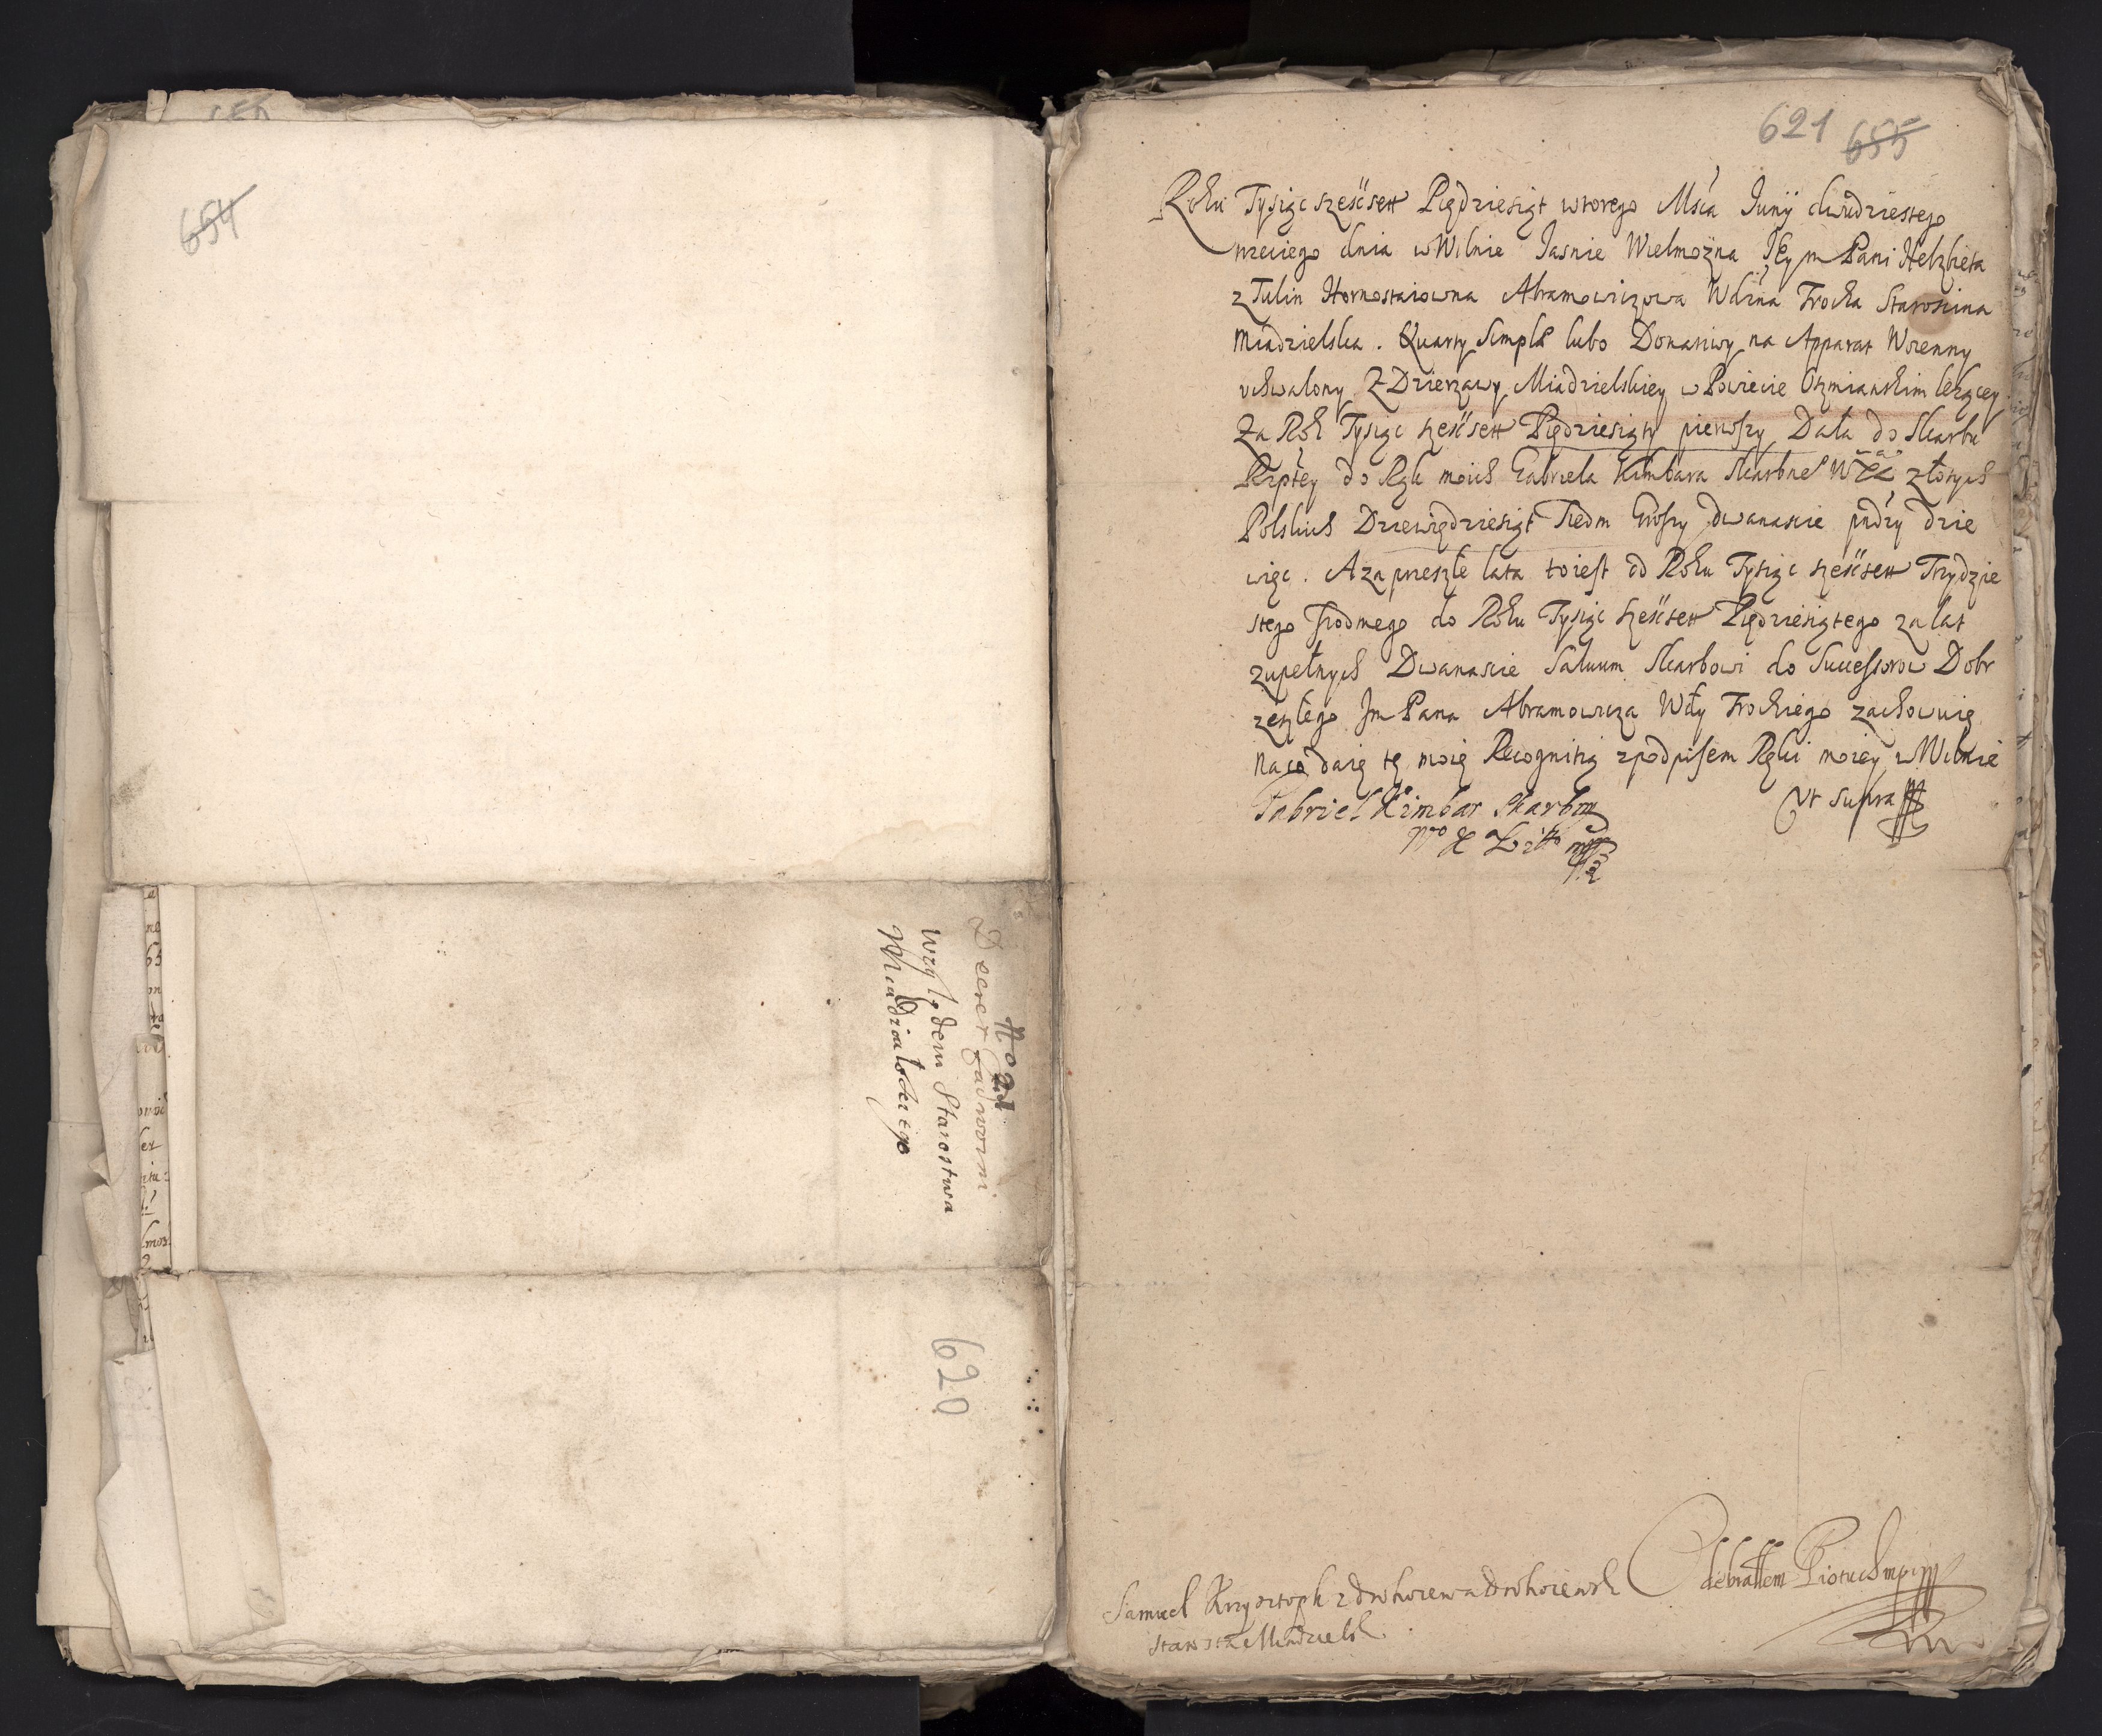 654
No 21
Decret Zadworni
wzylędem Starostwa
Miadziałoskiego
620
621 655
Roku Tysiąc sześćsett Piędziesiąt wtorego Msca Iuny dwudziestego
trzeciego dnia w Wilnie Iasnie Wielmożna Iey m Pani Helzbieta
z Tulin Hornostaiowna Abramowiczowa Wdzna Trocka Staroscina
Miadzielska. Quarty Simpla lubo Donatiwy na Apparat Woienny
uchwalony Z Dzierzawy Miadzielskiey w Powiecie Oszmianskim leżącey
Za Rok Tysiąc sześćsett Piędziesiąty pierwszy Dała do Skarbu
Rzptey do Rąk moich Gabriela Kimbara Skarbne° WXL złotych
Polskich Dziewiędziesiąt Siedm Groszy dwanascie pndzy dzie
więc. A za przeszłe lata to iest od Roku Tysiąc sześćsett Trzydzie
stego siodmego do Roku Tysiąc sześćsett Piędziesiątego za lat
zupełnych Dwanascie Saluum Skarbowi do Successorow Dobr
zeszłego Im Pana Abramowicza Wdy Trockiego zachowuię
Na co daię tę moię Recognitią z podpisem Ręki moiey w Wilnie
Vt supra
Gabriel Kimbar Skarbny
W° X Litt° mp
Odebrałem
Samuel Krzysztoph z Drohoiewa Drohoiewsk
Starosta Miadzielsk